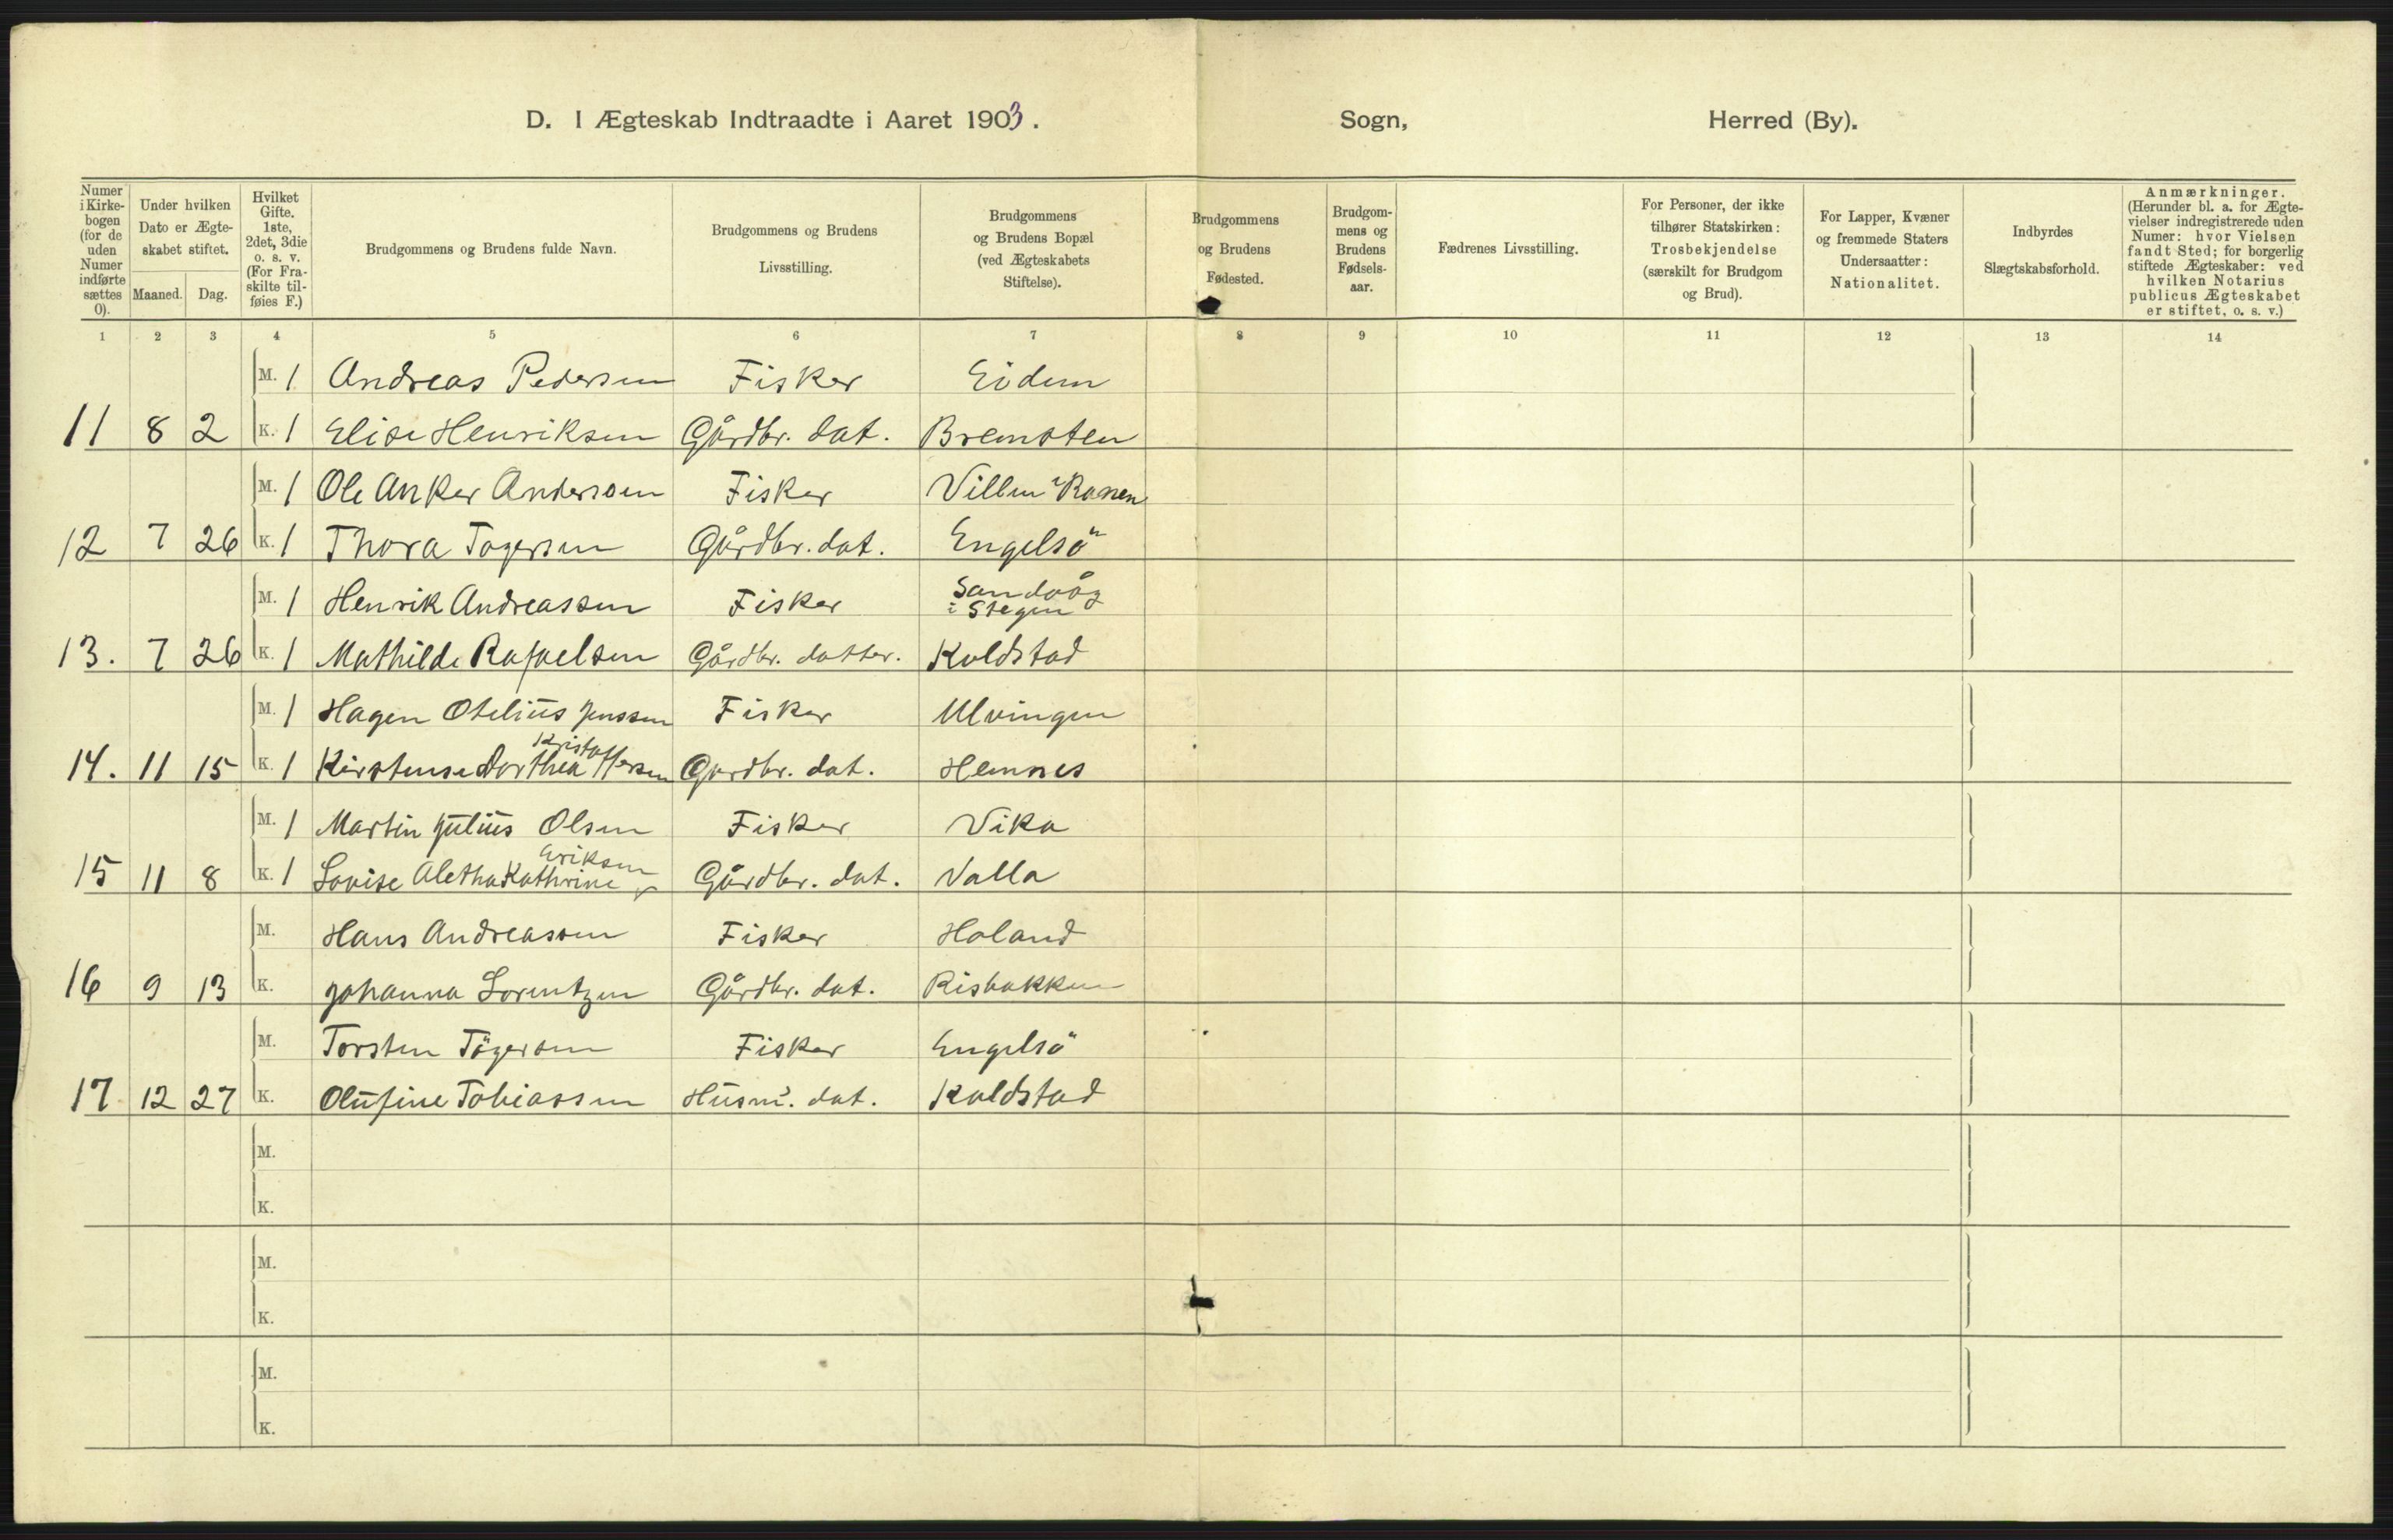 D. I Ægteskab Indtraadte i Aaret 1903. Sogn, Herred (By).
Numer i Kirkebogen (for de uden Numer indførte sættes 0).
Under hvilken Dato er Ægteskabet stiftet.
Maaned. Dag.
Hvilket Gifte. 1ste, 2det, 3die o. s. v. (For Fraskilte tilføies F.)
Brudgommens og Brudens fulde Navn.
Brudgommens og Brudens Livsstilling.
Brudgommens og Brudens Bopæl (ved Ægteskabets Stiftelse).
Brudgommens og Brudens Fødested.
Brudgommens og Brudens Fødselsaar.
Fædrenes Livsstilling.
For Personer, der ikke tilhører Statskirken: Trosbekjendelse (særskilt for Brudgom og Brud).
For Lapper, Kvæner og fremmede Staters Undersaatter: Nationalitet.
Indbyrdes Slægtskabsforhold.
Anmærkninger. (Herunder bl. a. for Ægtevielser indregistrerede uden Numer: hvor Vielsen fandt Sted; for borgerlig stiftede Ægteskaber: ved hvilken Notarius publicus Ægteskabet er stiftet, o. s. v.)
1 2 3 4 5 6 7 8 9 10 11 12 13 14
M. 1 Andreas Pedersen Fisker Eidem
11 8 2 K. 1 Elise Henriksen Gårdbr. dat. Bremsten
M. 1 Ole Anker Andersen Fisker Villm i Ranen
12 7 26 K. 1 Thora Tøgersen Gårdbr. dat. Engelsö
M. 1 Henrik Andreassen Fisker Sandvåg i Stegen
13. 7 26 K. 1 Mathilde Rafaelsen Gårdbr. datter. Koldstad
M. 1 Hagen Otelius Jenssen Fisker Ulvingen
14. 11 15 K. 1 Kirstense Dorthea Kristoffersen Gardbr. dat. Hemnes
M. 1 Martin Julius Olsen Fisker Vika
15 11 8 K. 1 Lovise Aletha Kathrine Eriksen Gårdbr. dat. Valla
M. Hans Andreassen Fisker Holand
16 9 13 K. Johanna Lorentzen Gårdbr. dat. Risbakken
M. Torsten Tögersen Fisker Engelsö
17 12 27 K. Olufine Tobiassen Husm. dat. Koldstad
M.
K.
M.
K.
M.
K.